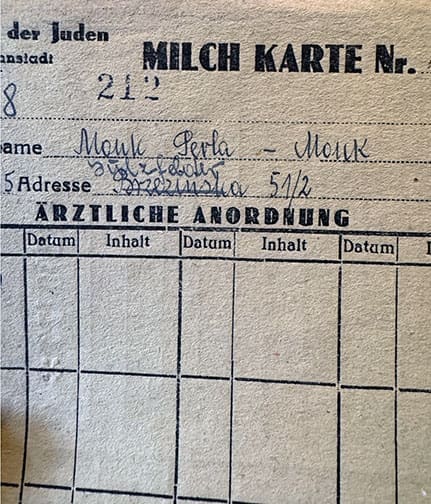 der Juden
MILCH KARTE Nr.
212
8
ame Monk Perla - Monk
Sulzfelder
5 Adresse Brzezinska 51/2
ÄRZTLICHE ANORDNUNG
Datum Inhalt Datum Inhalt Datum I